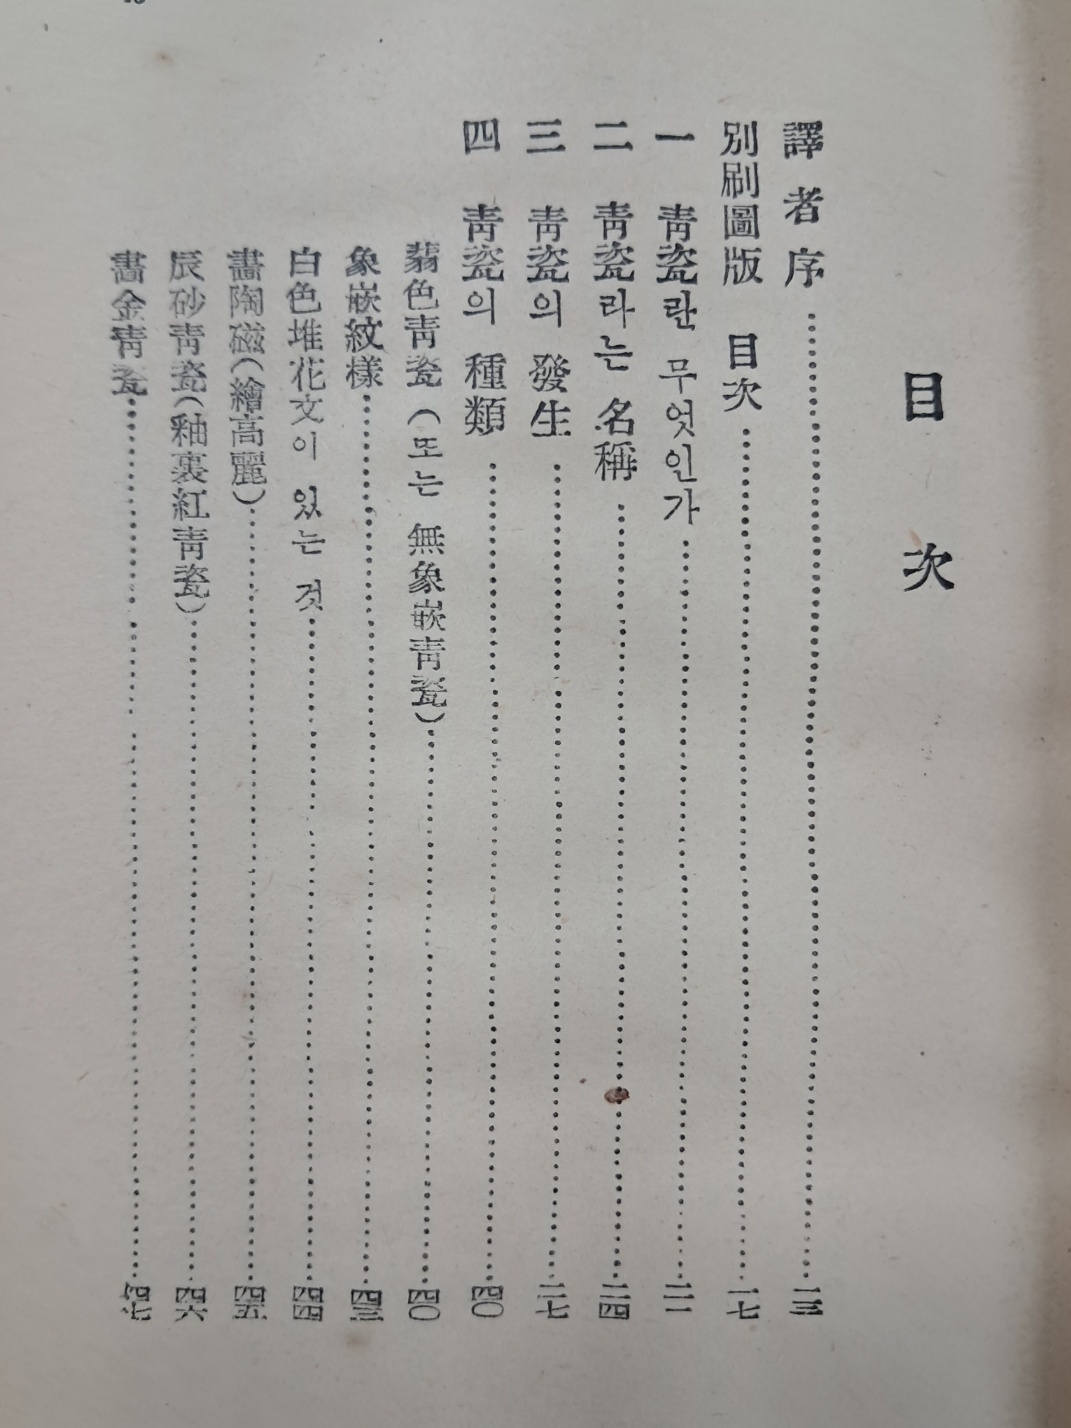 目次
譯者序……一三
別刷圖版 目次……一七
一 靑瓷란 무엇인가……二一
二 靑瓷라는 名稱……二四
三 靑瓷의 發生……二七
四 靑瓷의 種類……四〇
翡色靑瓷 (또는 無象嵌靑瓷)……四〇
象嵌紋樣……四三
白色堆花文이 있는 것……四四
畵陶磁(繪高麗)……四五
辰砂靑瓷(釉裏紅靑瓷)……四六
畵金靑瓷……四七